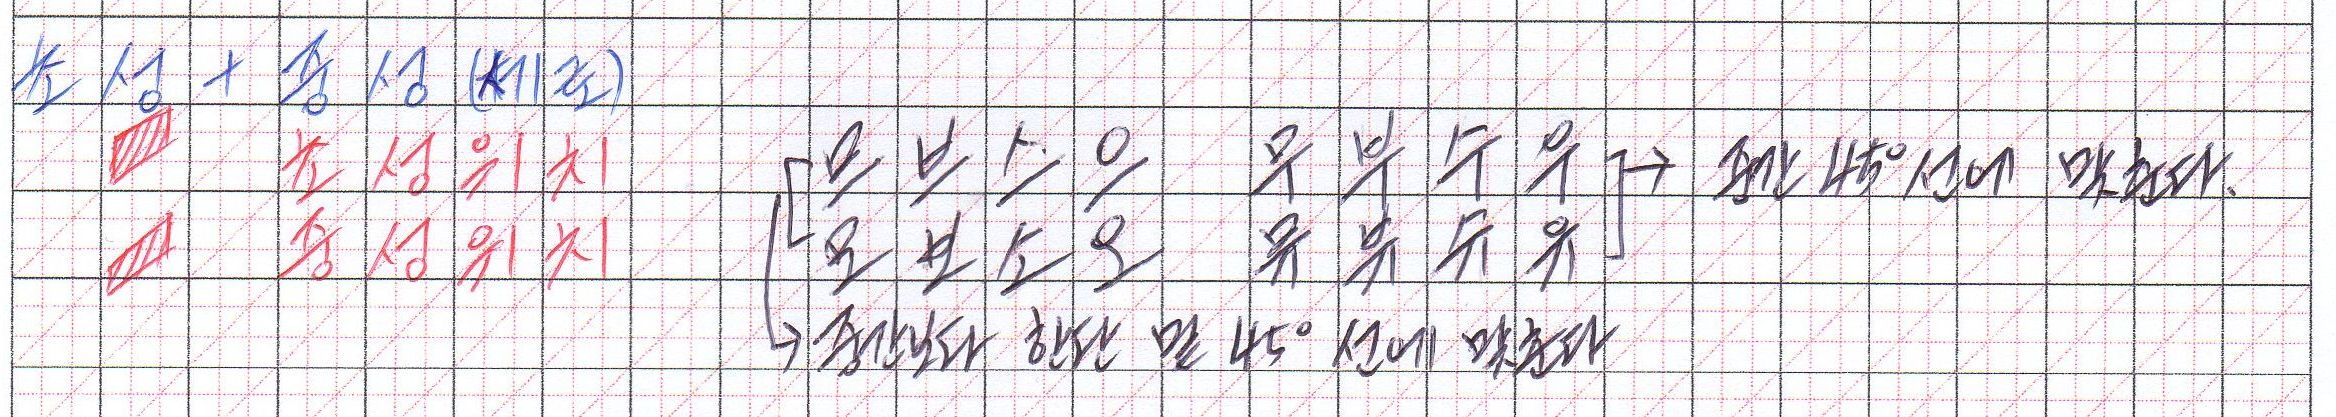 초성 + 중성 (세로)
초성위치
중성위치
므 브 스 으 무 부 수 우 → 중간 45° 선에 맞춘다.
모 보 소 오 뮤 뷰 슈 유
→ 중간보다 한단 밑 45° 선에 맞춘다